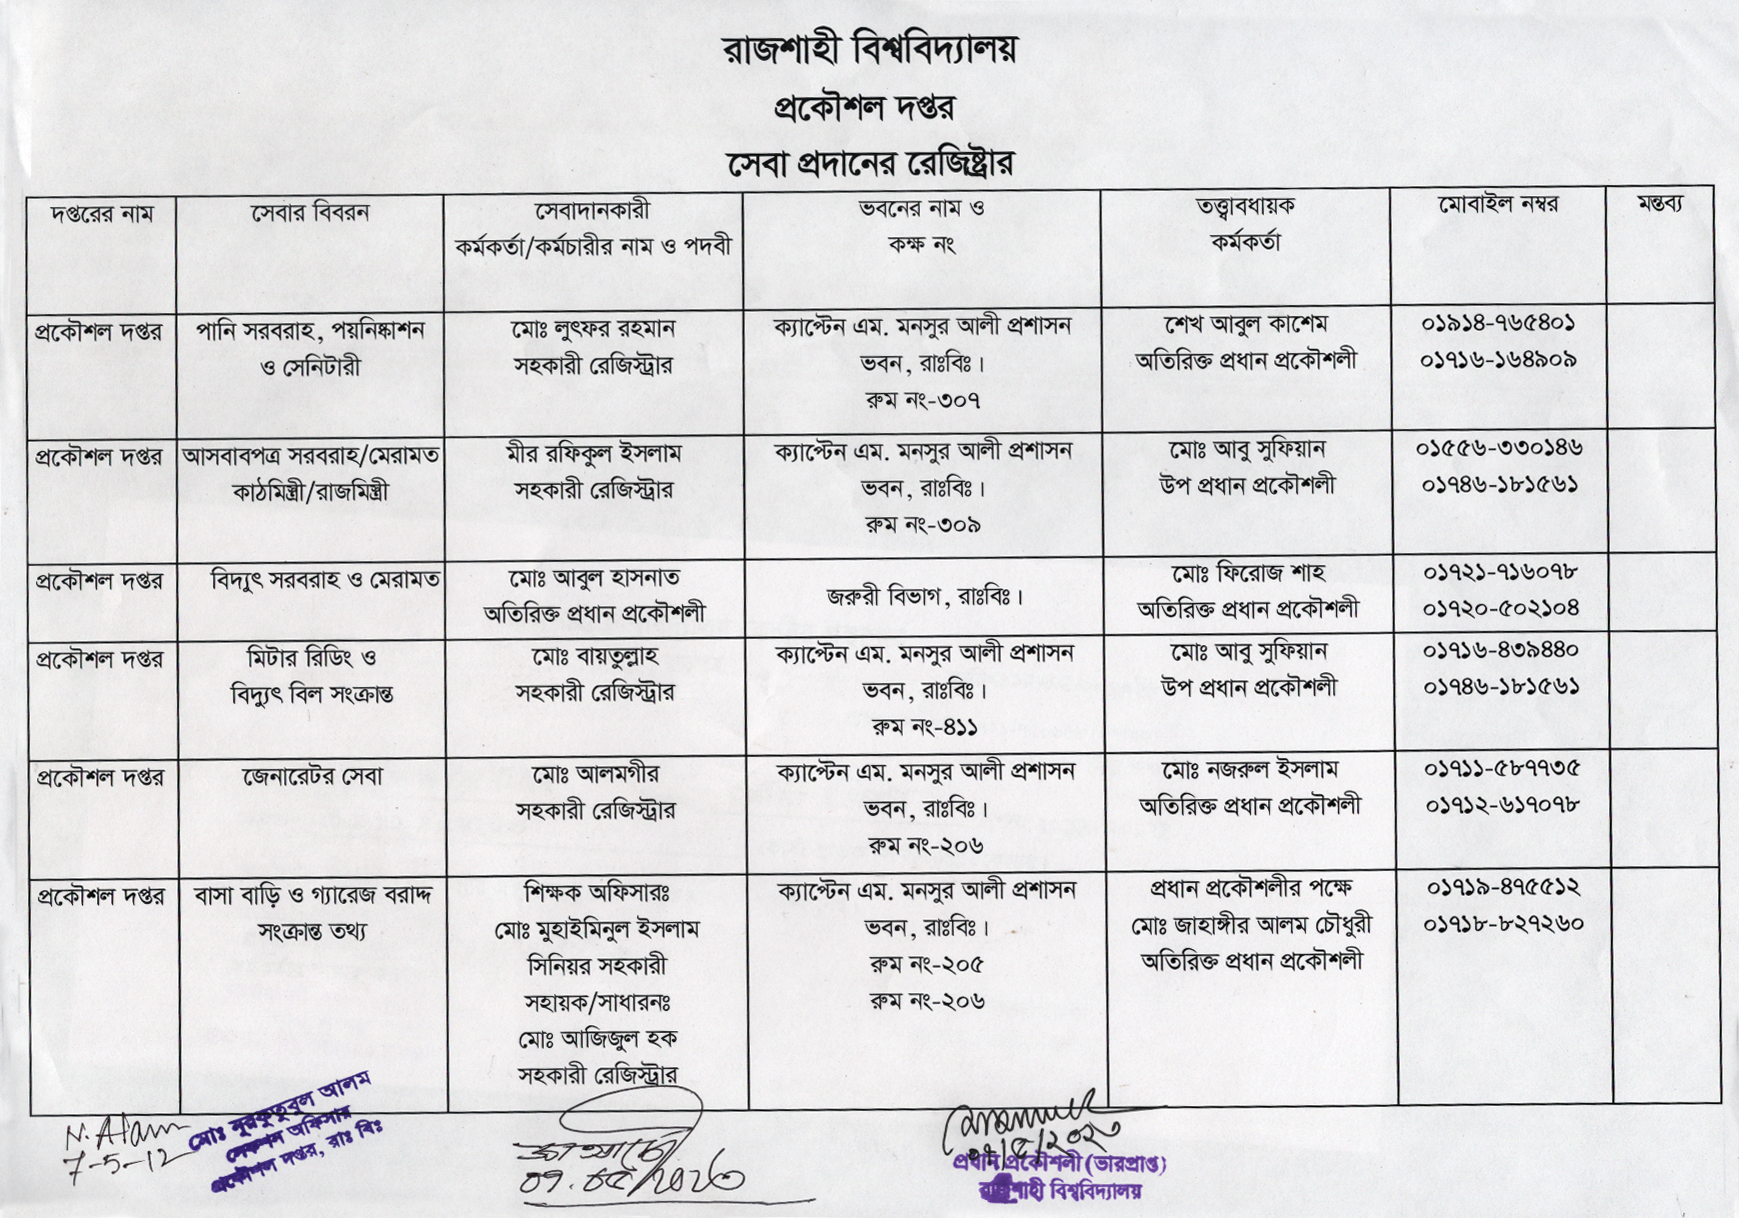 রাজশাহী বিশ্ববিদ্যালয়
প্রকৌশল দপ্তর
সেবা প্রদানের রেজিষ্ট্রার
দপ্তরের নাম
সেবার বিবরন
সেবাদানকারী
কর্মকর্তা/কর্মচারীর নাম ও পদবী
ভবনের নাম ও
কক্ষ নং
তত্ত্বাবধায়ক
কর্মকর্তা
মোবাইল নম্বর
মন্তব্য
প্রকৌশল দপ্তর
পানি সরবরাহ, পয়নিষ্কাশন
ও সেনিটারী
মোঃ লুৎফর রহমান
সহকারী রেজিস্ট্রার
ক্যাপ্টেন এম. মনসুর আলী প্রশাসন
ভবন, রাঃবিঃ।
রুম নং-৩০৭
শেখ আবুল কাশেম
অতিরিক্ত প্রধান প্রকৌশলী
০১৯১৪-৭৬৫৪০১
০১৭১৬-১৬৪৯০৯
প্রকৌশল দপ্তর
আসবাবপত্র সরবরাহ/মেরামত
কাঠমিস্ত্রী/রাজমিস্ত্রী
মীর রফিকুল ইসলাম
সহকারী রেজিস্ট্রার
ক্যাপ্টেন এম. মনসুর আলী প্রশাসন
ভবন, রাঃবিঃ।
রুম নং-৩০৯
মোঃ আবু সুফিয়ান
উপ প্রধান প্রকৌশলী
০১৫৫৬-৩৩০১৪৬
০১৭৪৬-১৮১৫৬১
প্রকৌশল দপ্তর
বিদ্যুৎ সরবরাহ ও মেরামত
মোঃ আবুল হাসনাত
অতিরিক্ত প্রধান প্রকৌশলী
জরুরী বিভাগ, রাঃবিঃ।
মোঃ ফিরোজ শাহ
অতিরিক্ত প্রধান প্রকৌশলী
০১৭২১-৭১৬০৭৮
০১৭২০-৫০২১০৪
প্রকৌশল দপ্তর
মিটার রিডিং ও
বিদ্যুৎ বিল সংক্রান্ত
মোঃ বায়তুল্লাহ
সহকারী রেজিস্ট্রার
ক্যাপ্টেন এম. মনসুর আলী প্রশাসন
ভবন, রাঃবিঃ।
রুম নং-৪১১
মোঃ আবু সুফিয়ান
উপ প্রধান প্রকৌশলী
০১৭১৬-৪৩৯৪৪০
০১৭৪৬-১৮১৫৬১
প্রকৌশল দপ্তর
জেনারেটর সেবা
মোঃ আলমগীর
সহকারী রেজিস্ট্রার
ক্যাপ্টেন এম. মনসুর আলী প্রশাসন
ভবন, রাঃবিঃ।
রুম নং-২০৬
মোঃ নজরুল ইসলাম
অতিরিক্ত প্রধান প্রকৌশলী
০১৭১১-৫৮৭৭৩৫
০১৭১২-৬১৭০৭৮
প্রকৌশল দপ্তর
বাসা বাড়ি ও গ্যারেজ বরাদ্দ
সংক্রান্ত তথ্য
শিক্ষক অফিসারঃ
মোঃ মুহাইমিনুল ইসলাম
সিনিয়র সহকারী
সহায়ক/সাধারনঃ
মোঃ আজিজুল হক
সহকারী রেজিস্ট্রার
ক্যাপ্টেন এম. মনসুর আলী প্রশাসন
ভবন, রাঃবিঃ।
রুম নং-২০৫
রুম নং-২০৬
প্রধান প্রকৌশলীর পক্ষে
মোঃ জাহাঙ্গীর আলম চৌধুরী
অতিরিক্ত প্রধান প্রকৌশলী
০১৭১৯-৪৭৫৫১২
০১৭১৮-৮২৭২৬০
N. Alam
7-5-12
মোঃ নূরকুতুবুল আলম
সেকশন অফিসার
প্রকৌশল দপ্তর, রাঃ বিঃ
প্রধান প্রকৌশলী (ভারপ্রাপ্ত)
রাজশাহী বিশ্ববিদ্যালয়